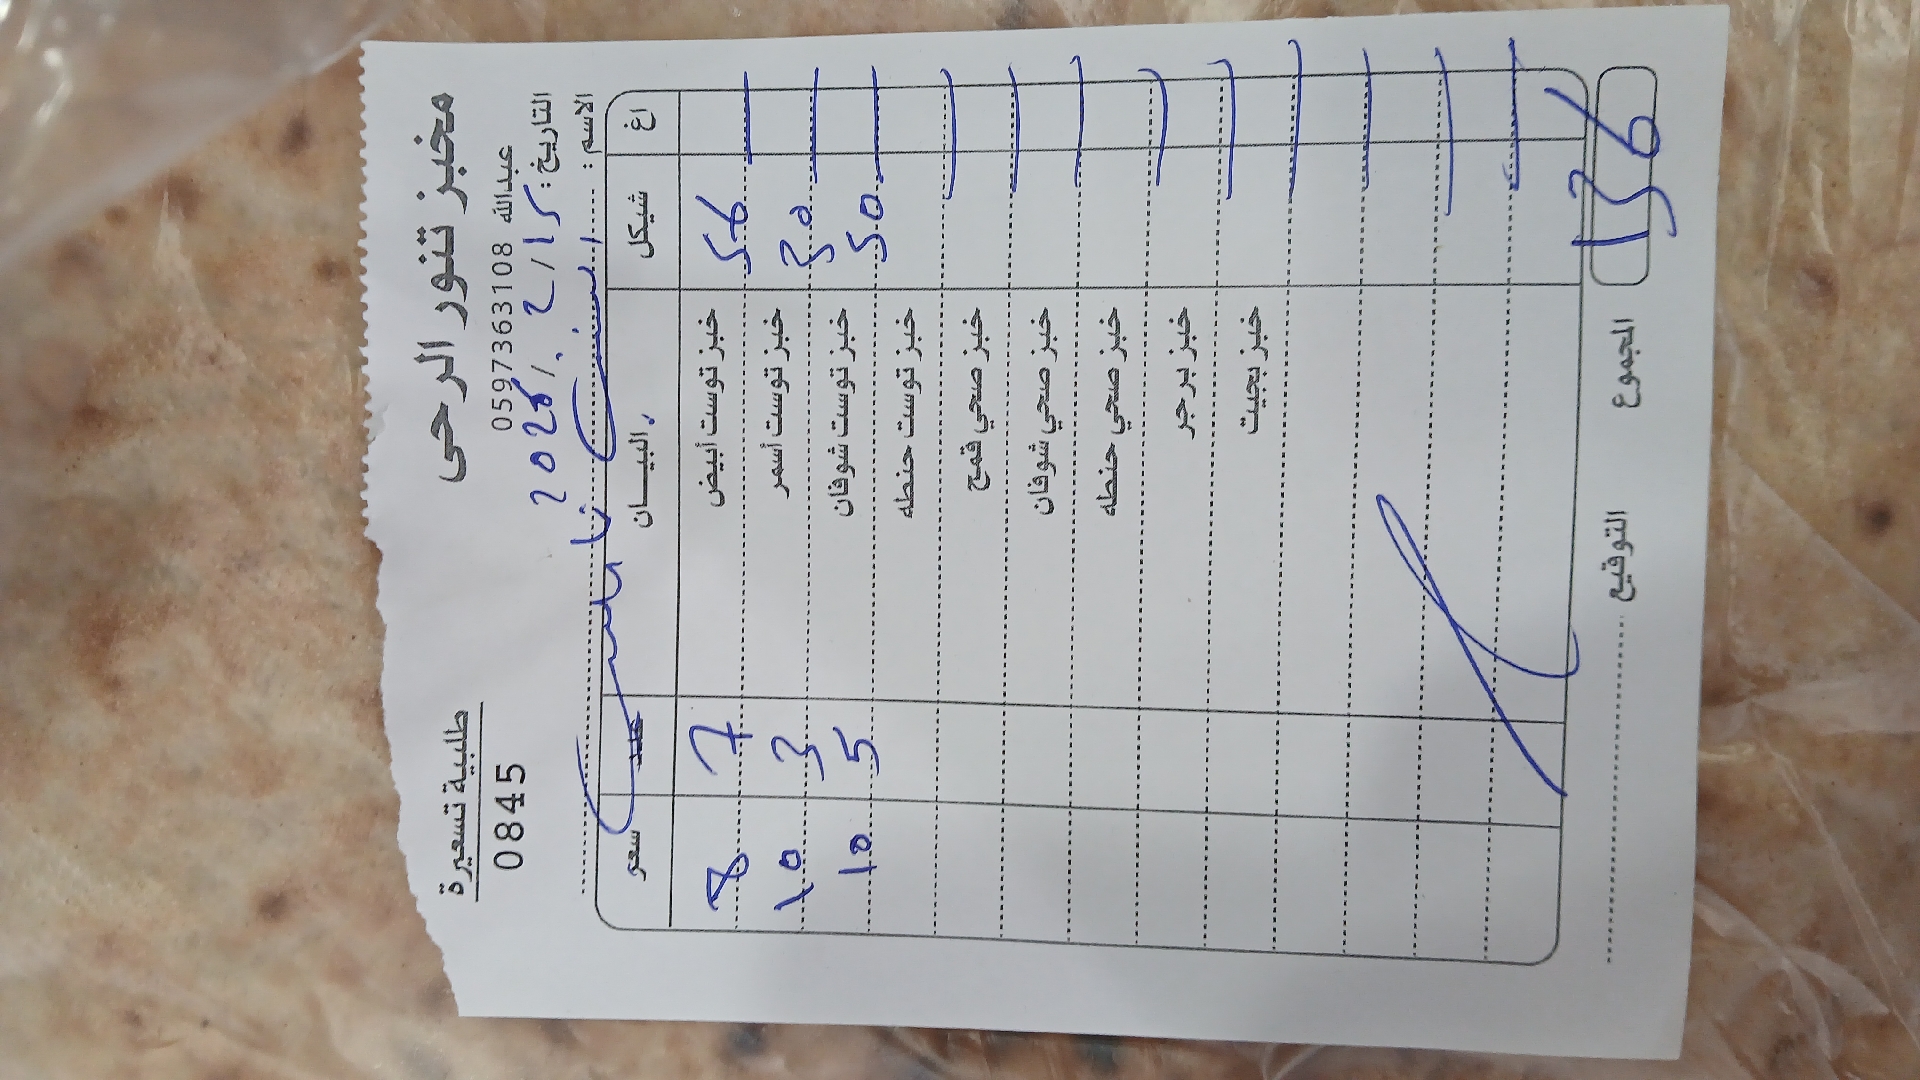 مخبز تنور الرحى
طلبية تسعيرة
عبدالله 0597363108
0845
التاريخ: 15 / 2 / 2026
الاسم:
اغ شيكل البيــــان سعر
56 خبز توست أبيض 7 8
30 خبز توست أسمر 3 10
50 خبز توست شوفان 5 10
خبز توست حنطه
خبز صحي قمح
خبز صحي شوفان
خبز صحي حنطه
خبز برجر
خبز بجيت
المجموع 136
التوقيع